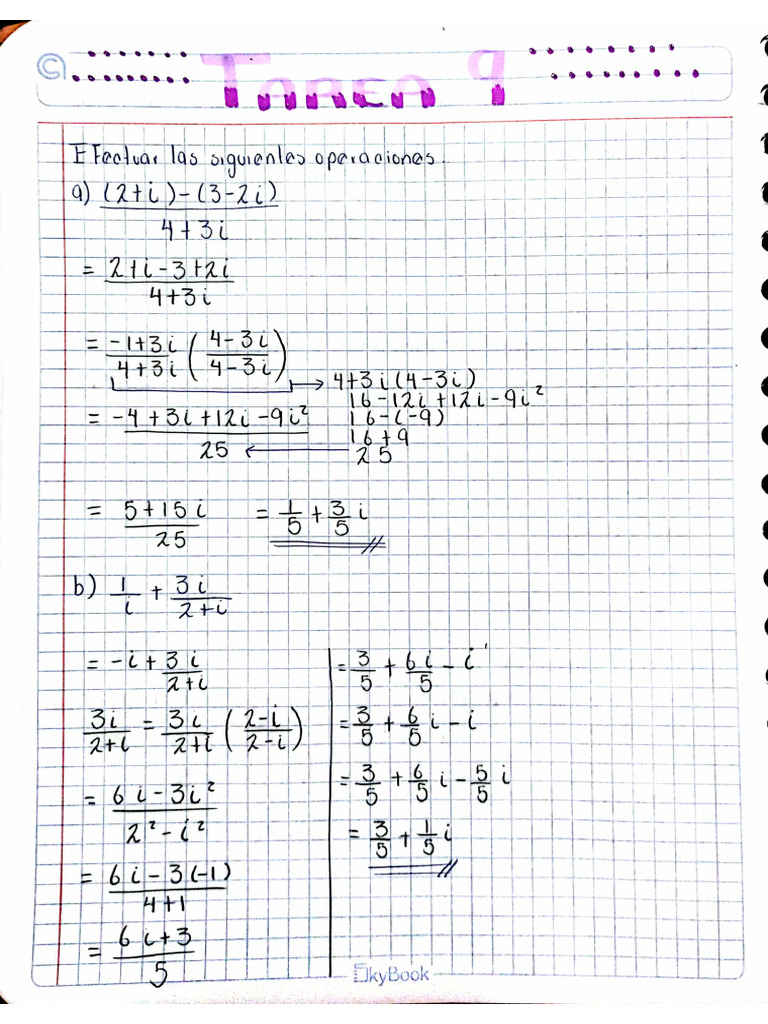 TAREA 9
Efectuar las siguientes operaciones.
a) (2+i)-(3-2i)
4+3i
= 2+i-3+2i
4+3i
= -1+3i ( 4-3i )
4+3i ( 4-3i )
4+3i(4-3i)
16-12i+12i-9i²
16-(-9)
16+9
25
= -4+3i+12i-9i²
25
= 5+15i = 1/5 + 3/5 i
25
b) 1/i + 3i/2+i
= -i + 3i/2+i
3i/2+i = 3i/2+i ( 2-i/2-i )
= 6i-3i²
2²-i²
= 6i-3(-1)
4+1
= 6i+3
5
= 3/5 + 6i/5 - i
= 3/5 + 6/5 i - i
= 3/5 + 6/5 i - 5/5 i
= 3/5 + 1/5 i
SkyBook